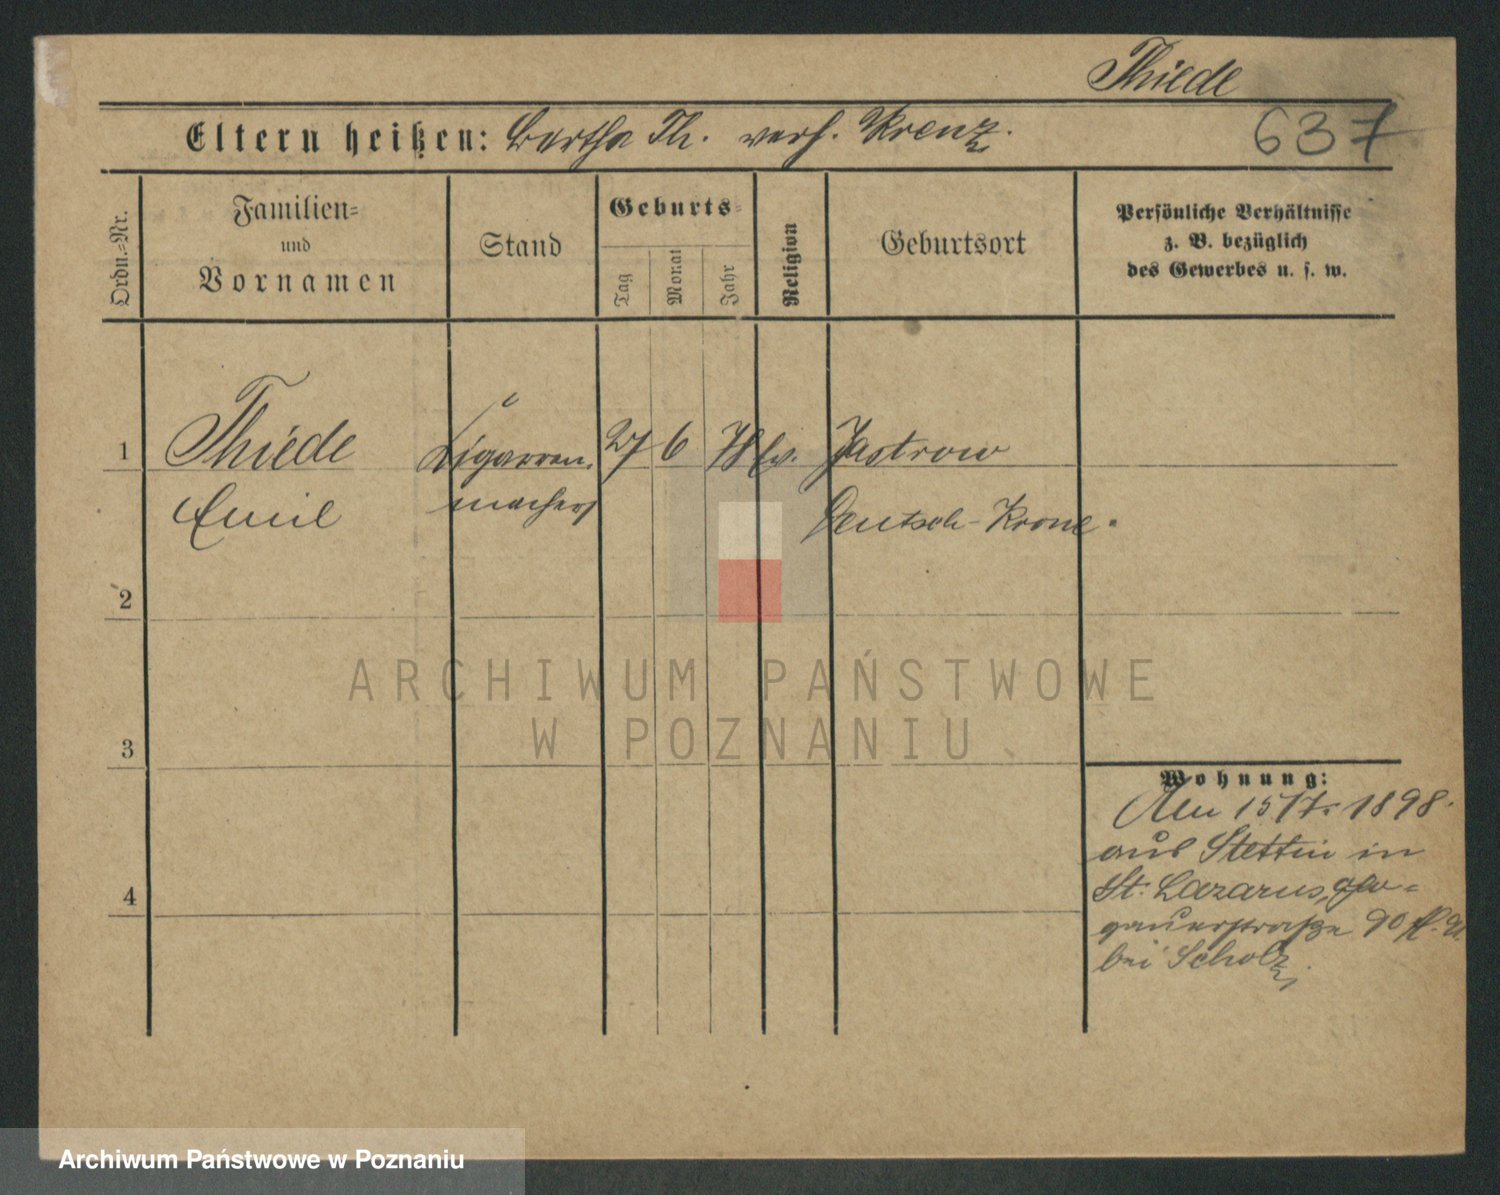 Thiede
Eltern heißen: Bertha Th. verh. Krenz.
637
Ordn.=Nr.
Familien=
und
Vornamen
Stand
Geburts=
Tag
Monat
Jahr
Religion
Geburtsort
Persönliche Verhältnisse
z. B. bezüglich
des Gewerbes u. s. w.
1
Thiede
Cigarren-
27 6 78 ev. Jastrow
Emil
macher
Deutsch-Krone.
2
ARCHIWUM PAŃSTWOWE
W POZNANIU
3
Wohnung:
Am 15/7. 1898.
aus Stettin in
St. Lazarus, Glo-
gauerstraße 90
bei Scholz
4
Archiwum Państwowe w Poznaniu